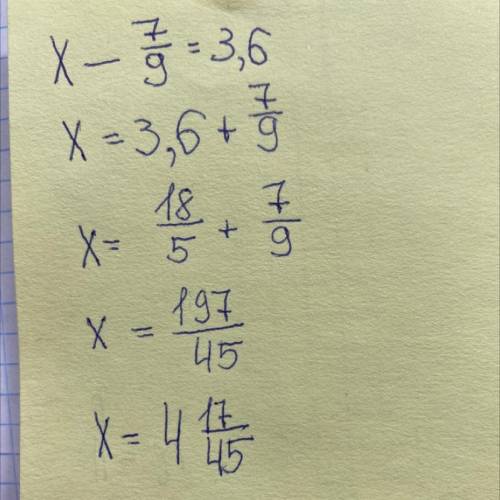 x - 7/9 = 3,6
x = 3,6 + 7/9
x = 18/5 + 7/9
x = 197/45
x = 4 17/45